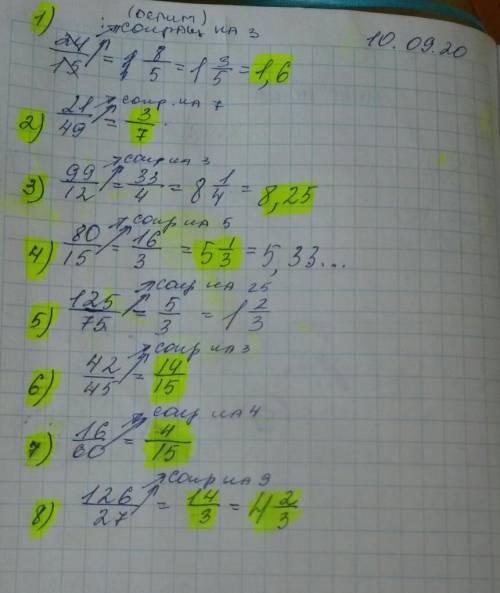 1) (делим) : сокращ на 3 10.09.20
24/15 = 8/5 = 1 3/5 = 1,6
2) 21/49 сокр. на 7 = 3/7.
3) 99/12 сокр на 3 = 33/4 = 8 1/4 = 8,25
4) 80/15 сокр на 5 = 16/3 = 5 1/3 = 5,33...
5) 125/75 сокр на 25 = 5/3 = 1 2/3
6) 42/45 сокр на 3 = 14/15
7) 16/60 сокр на 4 = 4/15
8) 126/27 сокр на 9 = 14/3 = 4 2/3